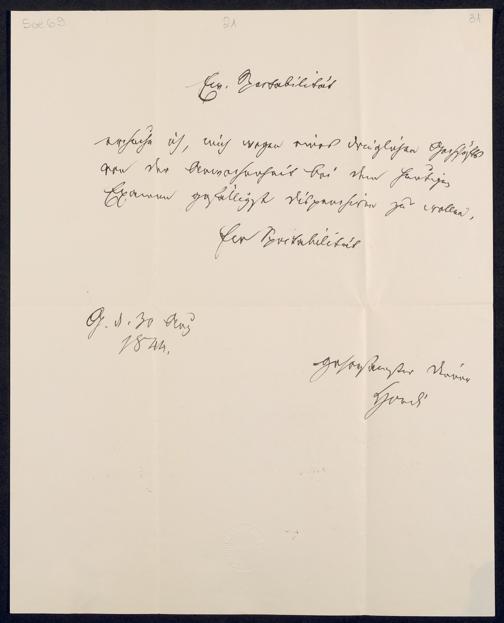 Soe 69
21
31
Ew. Spectabilität
ersuche ich, mich wegen eines dringlichen Geschäfts
von der Anwesenheit bei dem heutigen
Examen gefälligst dispensiren zu wollen.
Ew Spectabilität
G. d. 30 Aug
1844.
gehorsamster Diener